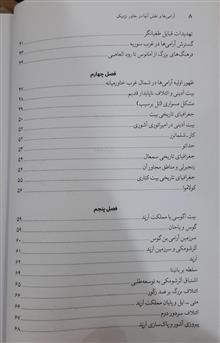 ۸ آرامی‌ها و نقش آنها در خاور نزدیک
تهدیدات قبایل طغیانگر
گسترش آرامی‌ها در غرب سوریه ۴۱
فرهنگ‌های بزرگ از آمانوس تا رود العاصی ۴۴
فصل چهارم
ظهور اولیه آرامی‌ها در شمال غرب خاورمیانه
بیت آدینی و ائتلاف ناپایدار قدیم
مشکل مسواری (تل برسیب)
جغرافیای تاریخی بیت
بیت آدینی در امپراتوری آشوری
کار-شلمانزر
حداتو
جغرافیای تاریخی سمعال
زنجیرلی و مناطق مجاور آن
جغرافیای تاریخی بیت کتاری
کولاموا
فصل پنجم
بیت آگوسی یا مملکت آرپد ۵۹
گوس و یاحان ۵۹
سرزمین آرامی بن گوس
آترشومکی و سرزمین آرپد
آرپد
سلطه بر باتینا
اشتیاق آترشومکی به توسعه‌طلبی
ائتلاف بزرگ بر ضد زکور
متی-ایل و پایان مملکت آرپد
ائتلاف سردور دوم
پیروزی آشور و پاکسازی آرپد ۶۸